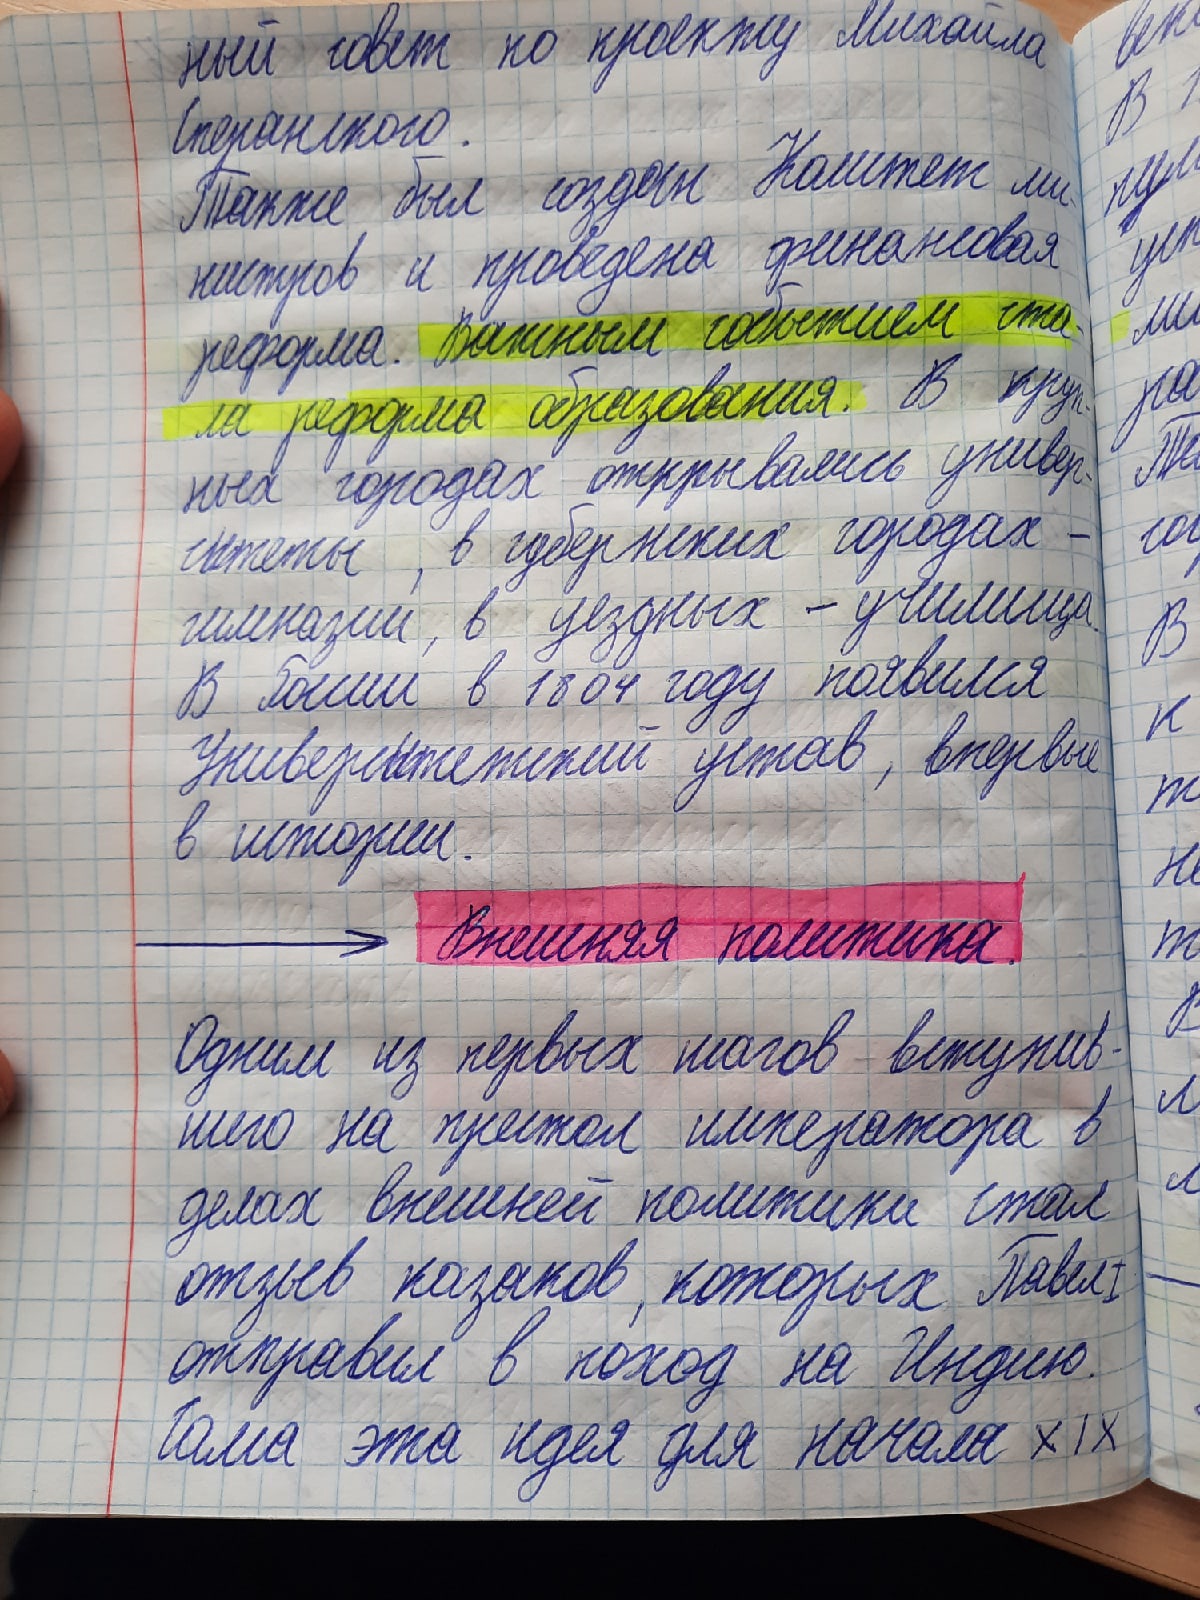 ный совет по проекту Михайла
Сперанского.
Также был создан Комитет ми-
нистров и проведена финансовая
реформа. Важным событием ста-
ла реформа образования. В круп-
ных городах открывались универ-
ситеты, в губернских городах -
гимназии, в уездных - училища.
В России в 1804 году появился
Университетский устав, впервые
в истории.
Внешняя политика.
Одним из первых шагов вступив-
шего на престол императора в
делах внешней политики стал
отзыв казаков, которых Павел I
отправил в поход на Индию.
Сама эта идея для начала XIX